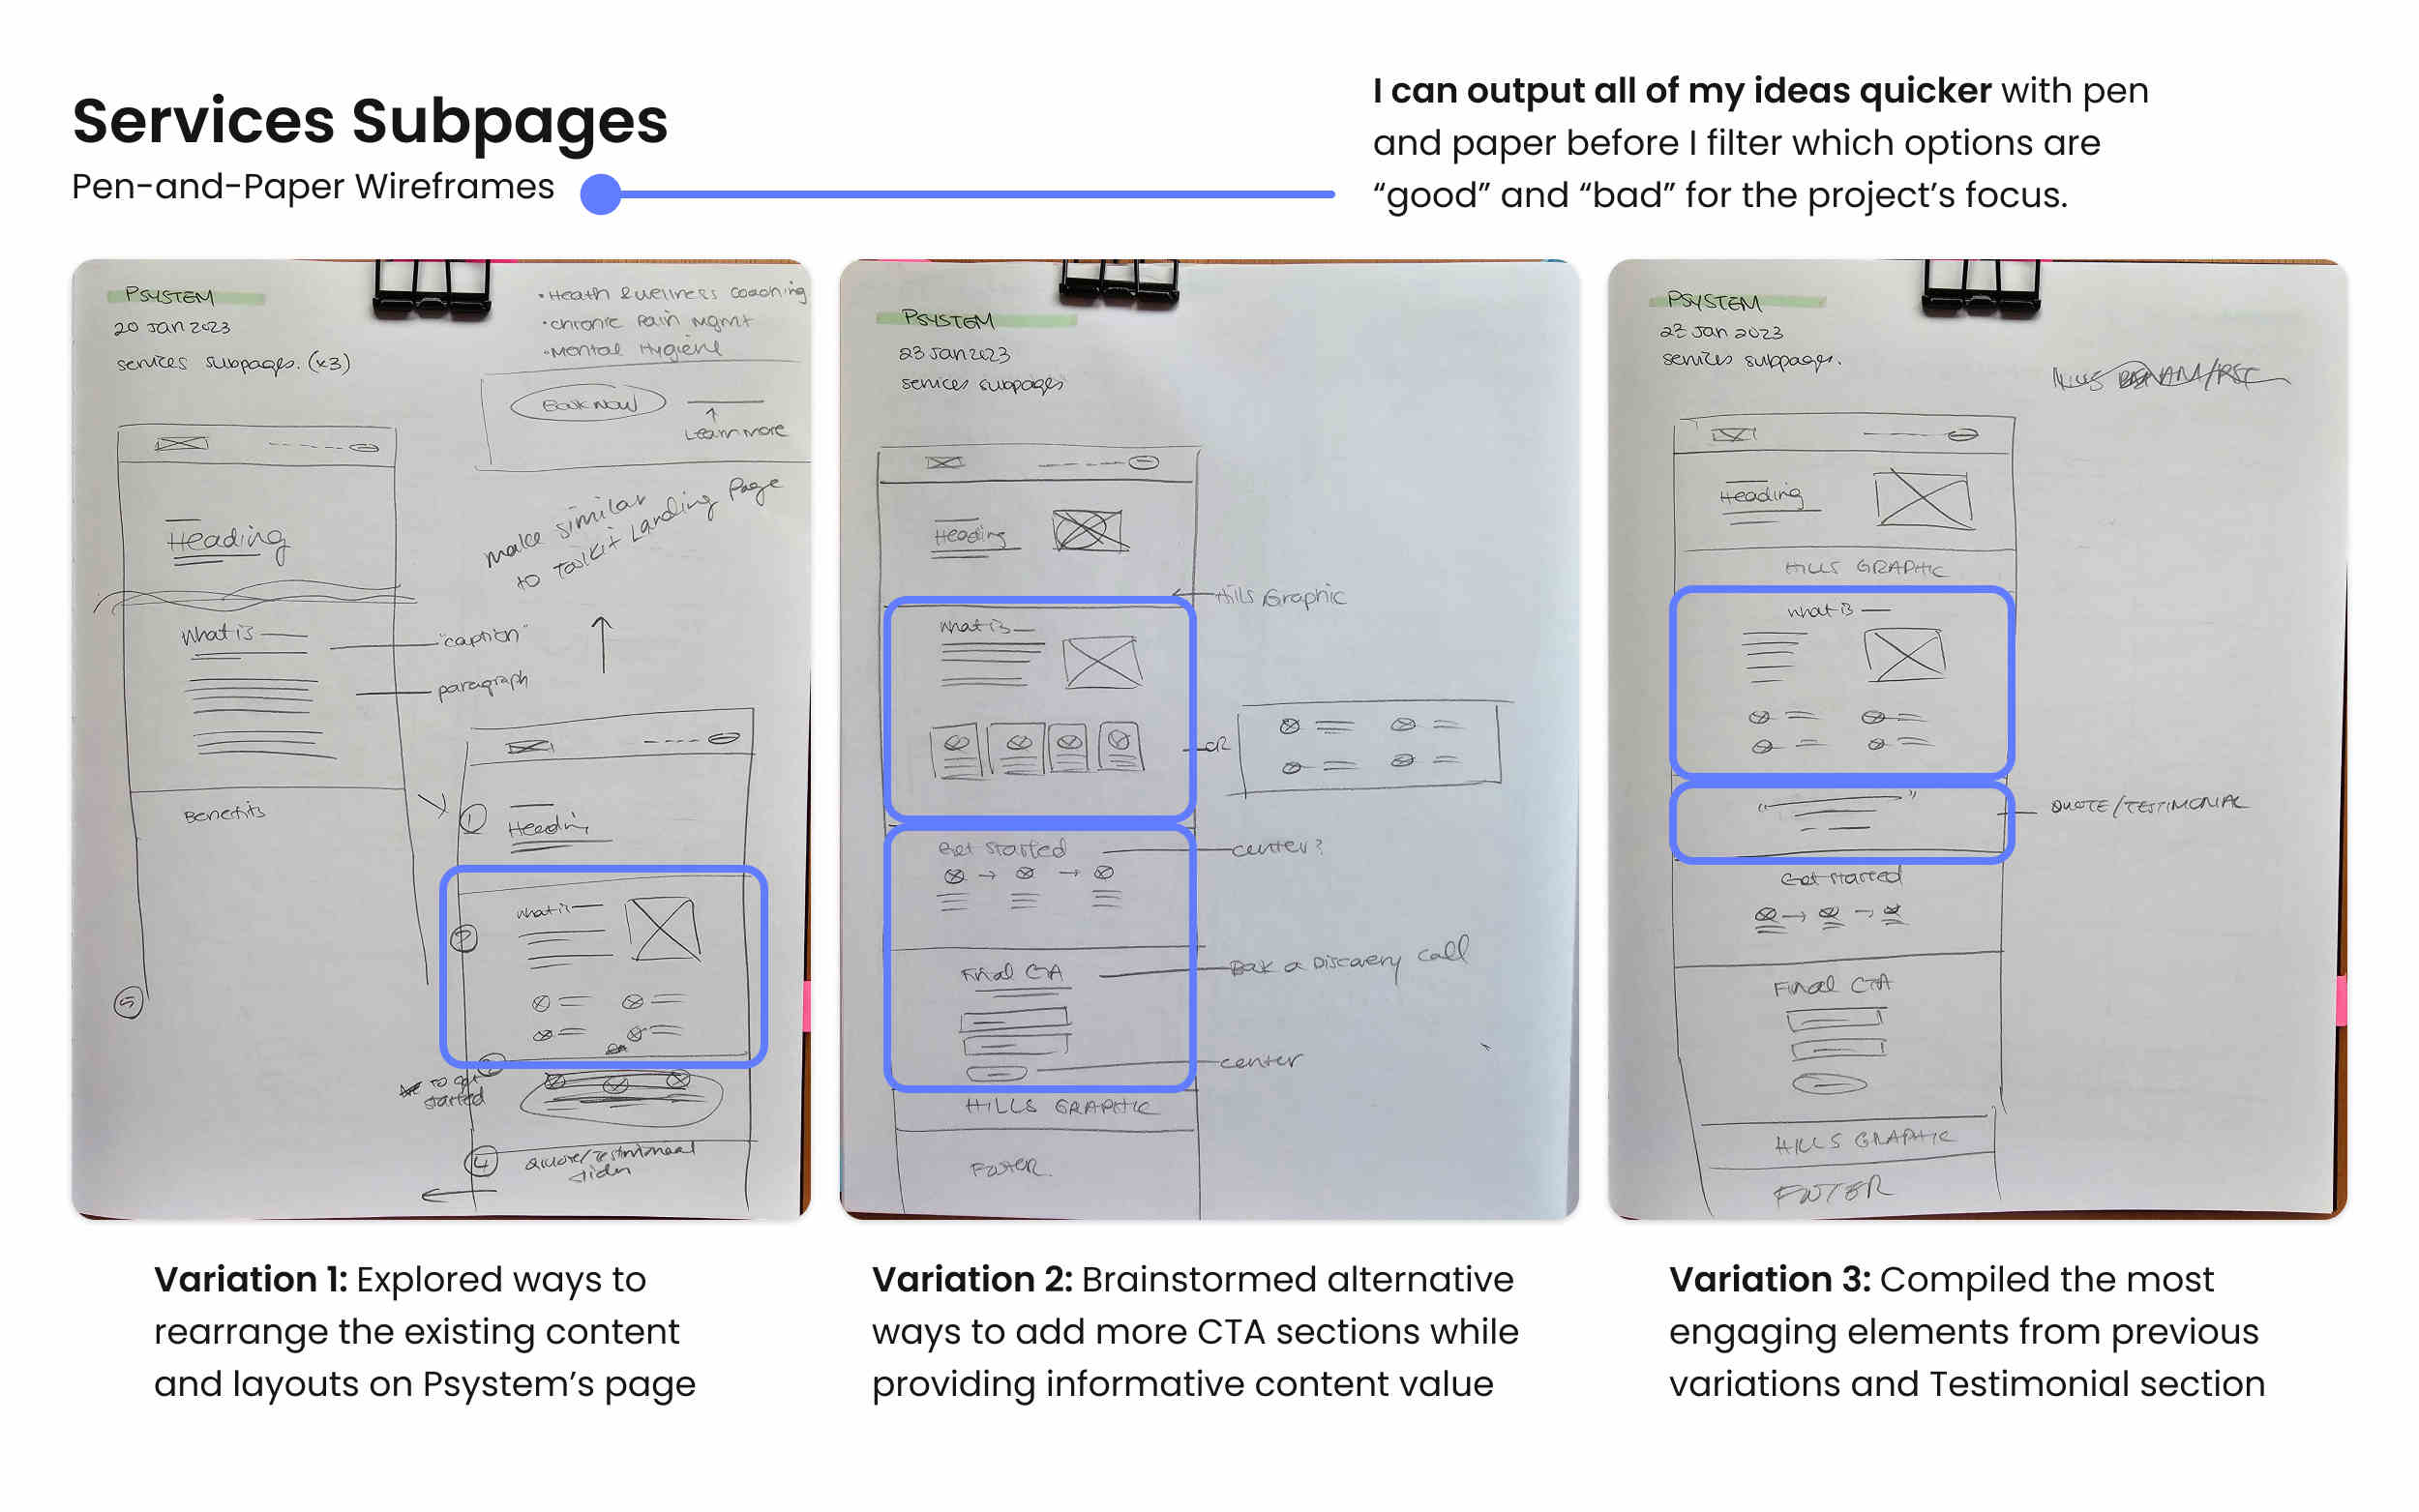 Services Subpages
Pen-and-Paper Wireframes
I can output all of my ideas quicker with pen
and paper before I filter which options are
“good” and “bad” for the project’s focus.
PSYSTEM
20 Jan 2023
services subpages. (x3)
• Heath & wellness coaching
• chronic Pain Mgmt
• Mental Hygiene
Book NOW
Learn more
make similar
to Toolkit Landing Page
Heading
What is
"caption"
paragraph
Benefits
5
1
Heading
2
What is
OR
3
to get
started
4
Quote/Testimonial
slider
PSYSTEM
23 Jan 2023
services subpages
Heading
Hills Graphic
What is
OR
Get Started
center?
Final CTA
Book a Discovery call
center
HILLS GRAPHIC
Footer.
PSYSTEM
23 Jan 2023
services subpages.
Heading
HILLS GRAPHIC
What is
“ ”
QUOTE/TESTIMONIAL
Get started
Final CTA
HILLS GRAPHIC
FOOTER
Variation 1: Explored ways to
rearrange the existing content
and layouts on Psystem’s page
Variation 2: Brainstormed alternative
ways to add more CTA sections while
providing informative content value
Variation 3: Compiled the most
engaging elements from previous
variations and Testimonial section